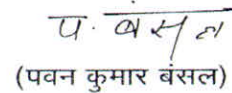 प. बंसल
(पवन कुमार बंसल)